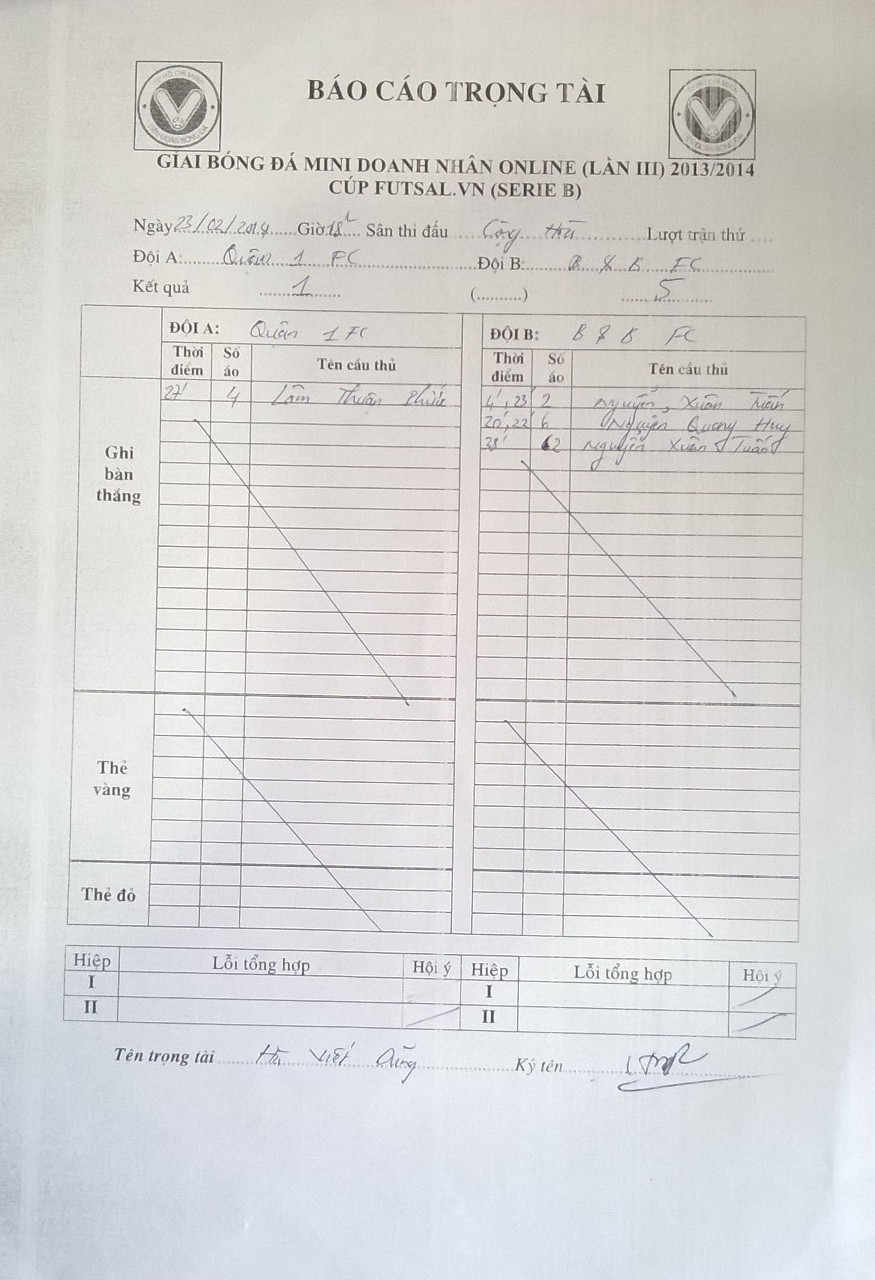 BÁO CÁO TRỌNG TÀI
GIẢI BÓNG ĐÁ MINI DOANH NHÂN ONLINE (LẦN III) 2013/2014
CÚP FUTSAL.VN (SERIE B)
Ngày 23/02/2014 Giờ 18h Sân thi đấu Cộng Hòa Lượt trận thứ ....
Đội A: Quận 1 FC Đội B: B & B FC
Kết quả 1 (..........) 5
ĐỘI A: Quận 1 FC ĐỘI B: B & B FC
Thời điểm Số áo Tên cầu thủ Thời điểm Số áo Tên cầu thủ
Ghi bàn thắng
27' 4 Lâm Thuận 4', 23' 2 Nguyễn Xuân Tuấn
20', 22' 6 Nguyễn Quang Huy
38' 2 Nguyễn Xuân Tuấn
Thẻ vàng
Thẻ đỏ
Hiệp Lỗi tổng hợp Hội ý Hiệp Lỗi tổng hợp Hội ý
I I
II II
Tên trọng tài Viết Dũng Ký tên